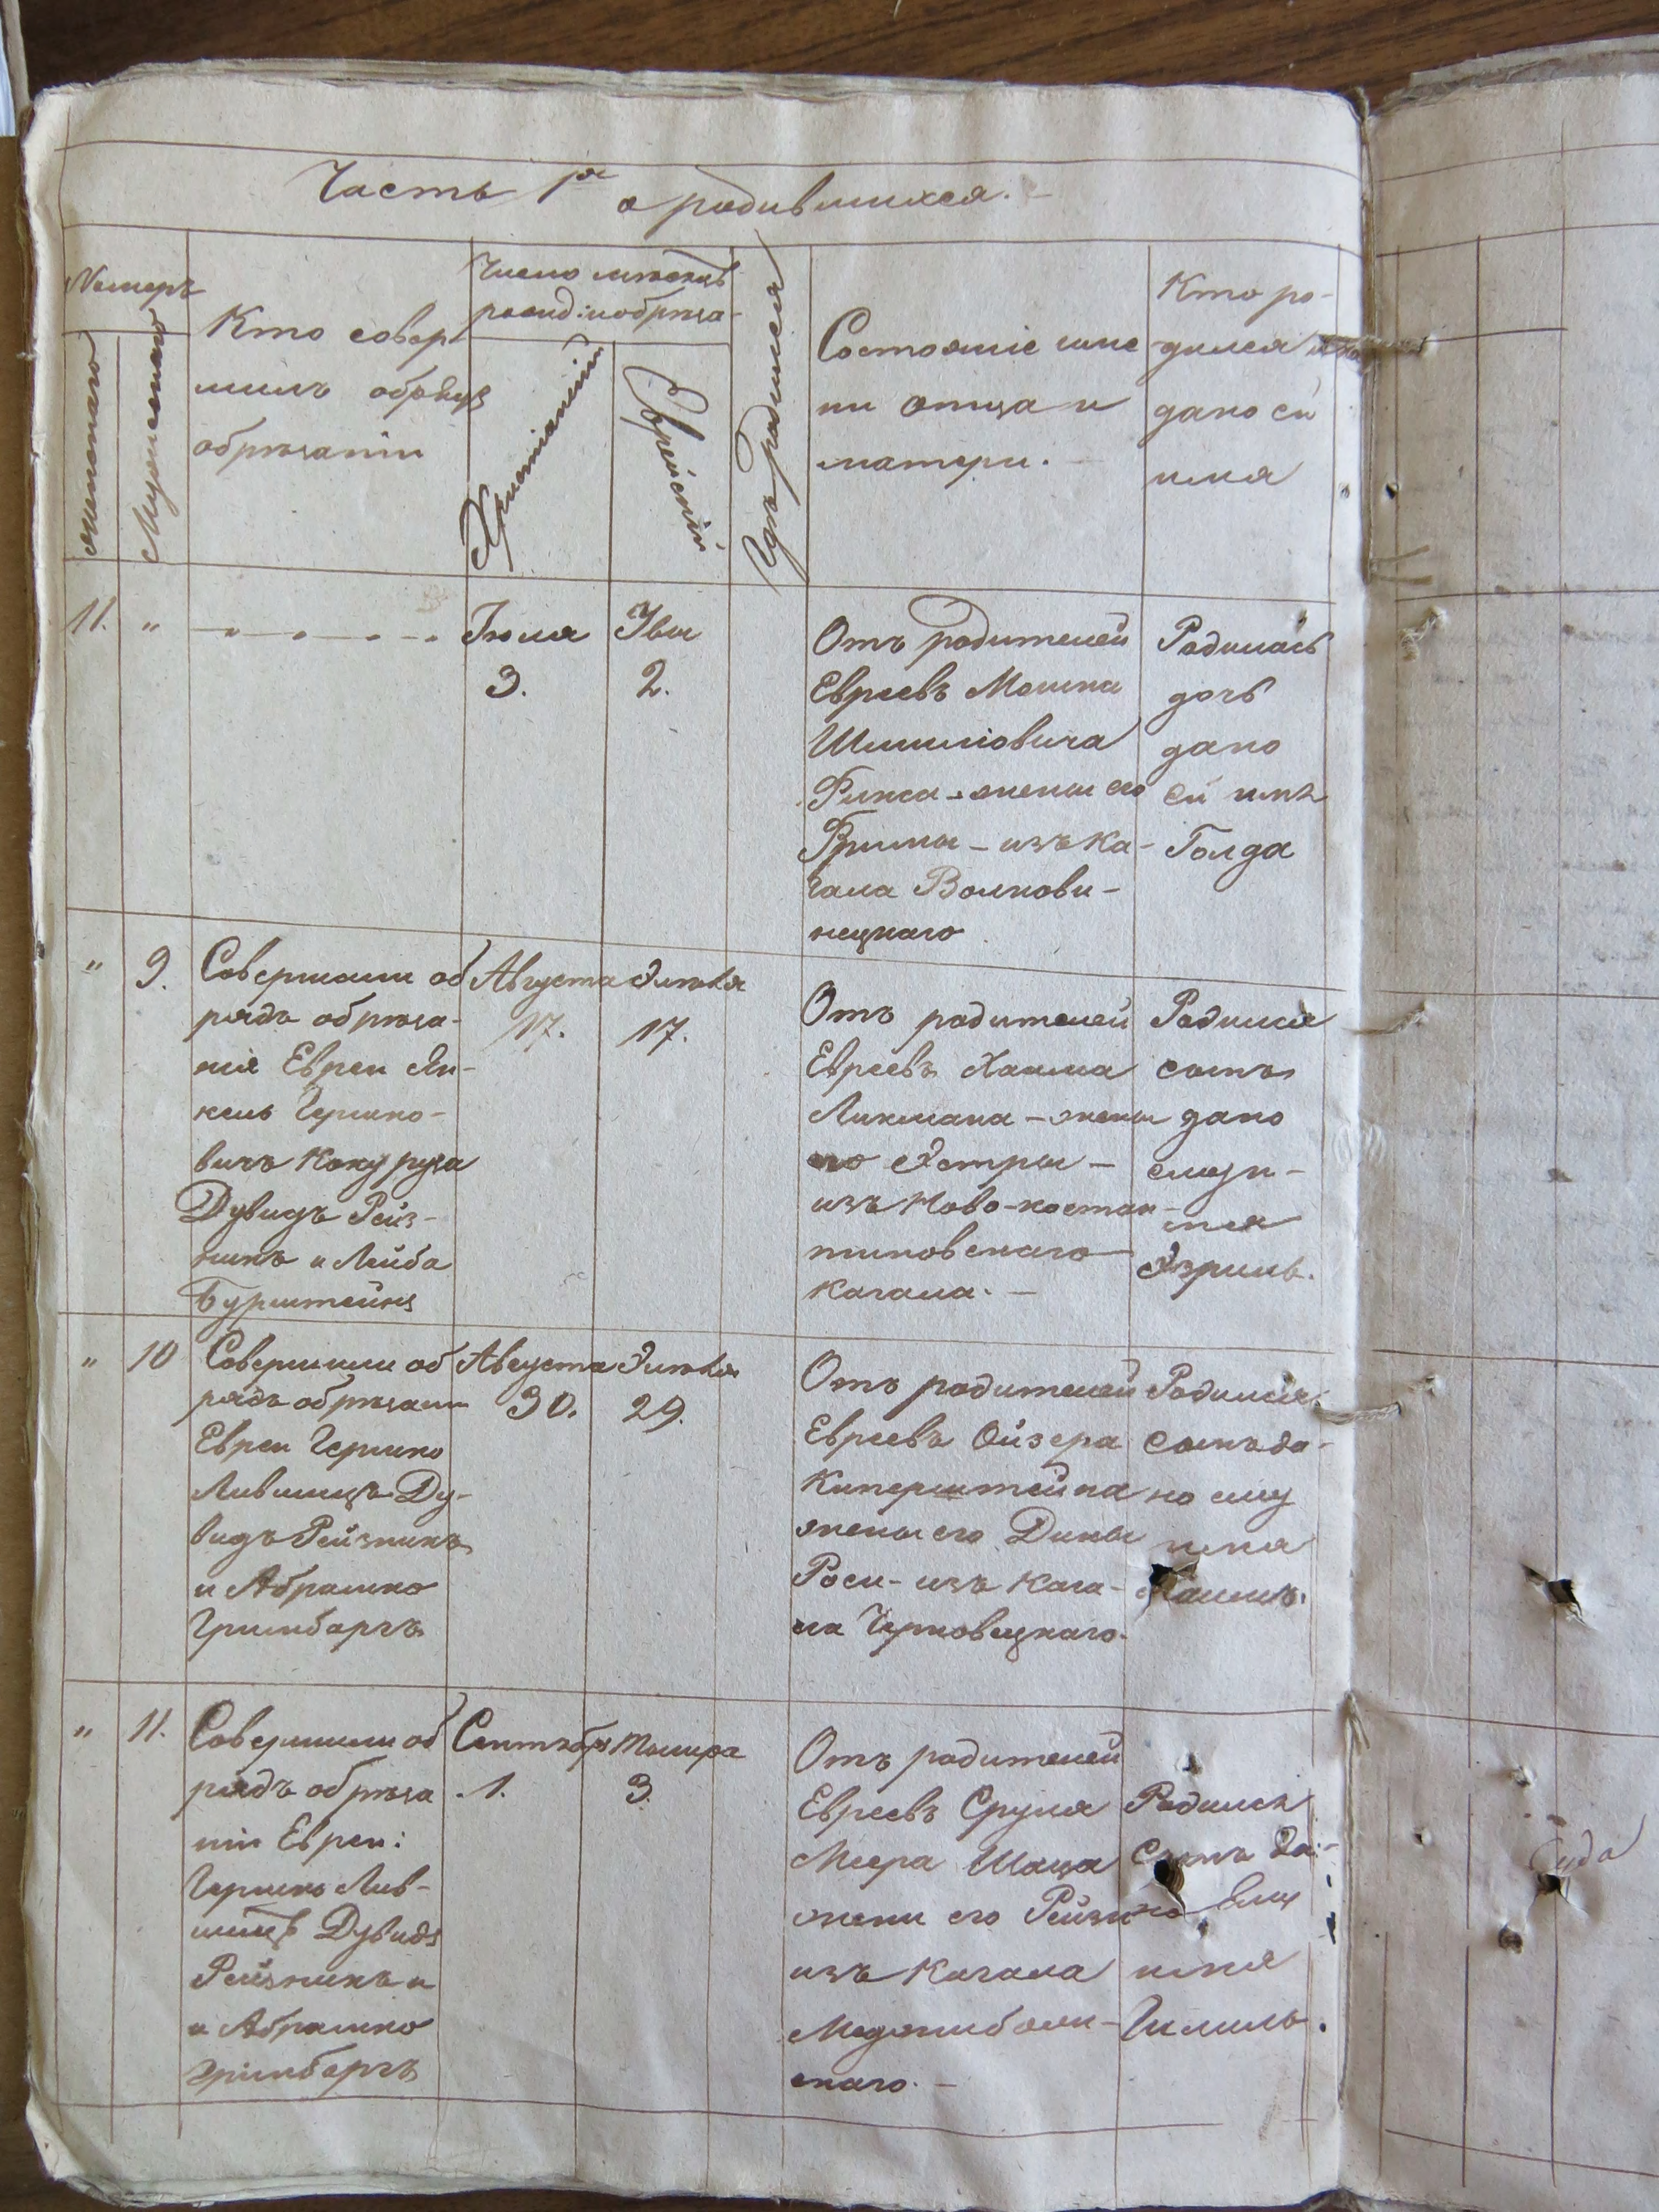 Часть 1я о родившихся.
Номеръ
женскаго
Мужескаго
Кто совер
шилъ обрядъ
обрѣзанія
Число мѣсяцъ
рожд: и обрѣза-
Христіанскій
Еврейскій
Гдѣ родился
Состояніе име
ни отца и
матери.
Кто ро-
дился
дано ей
имя
11.
"
Іюля
3.
2.
Отъ родителей
Евреевъ Мошка
Шмиліовича
жены его
изъ Ка-
гала Волкови-
нецкаго
Родилась
дочь
дано
ей имя
Голда
"
9.
Совершали об
рядъ обрѣза-
нія Евреи Ян-
кель Гершко-
вичъ Кокуруза
Дувидъ Рейз-
никъ и Лейба
Бурштейнъ
Августа
17.
Элюля
17.
Отъ родителей
Евреевъ Хаима
Ликмана - жены
его Эстры -
изъ Ново-костан-
тиновскаго
Кагала. -
Родился
сынъ
дано
ему и-
мя
Эзриль.
"
10
Совершили об
рядъ обрѣзанія
Евреи Гершко
Лившицъ Ду-
видъ Рейзникъ
и Абрамко
Гринбаргъ
Августа
30.
Элюля
29.
Отъ родителей
Евреевъ Ойзера
Киперштейна
жены его Дины
Роси - изъ Кага-
ла Черновецкаго.
Родился
сынъ да-
но ему
имя
"
11.
Совершили об
рядъ обрѣза
нія Евреи:
Гершко Лив-
шицъ Дувидъ
Рейзникъ и
и Абрамко
Гринбаргъ
Сентябр
1.
Тишра
3.
Отъ родителей
Евреевъ Сруля
Меера Шаца
жени его Рейзи
изъ Кагала
Меджибож-
скаго. -
Родился
Сынъ да-
но Ему
имя
Шмиль.